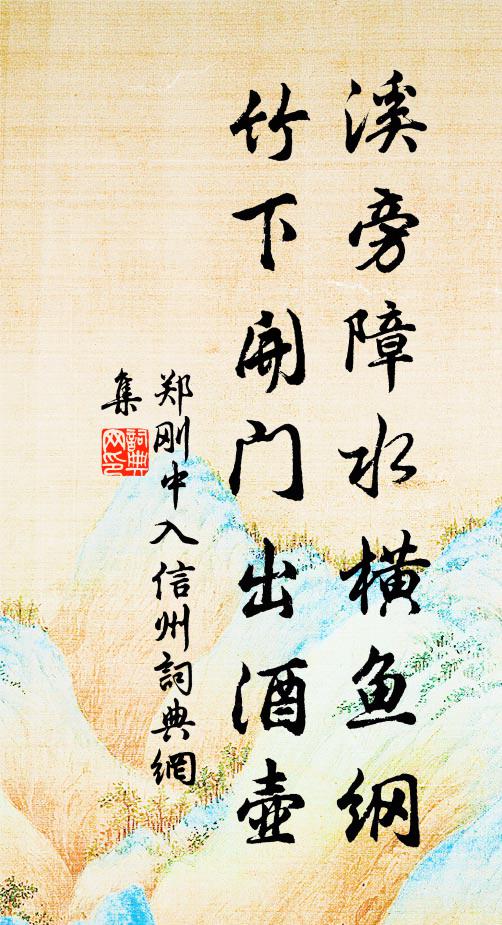 溪旁障水横鱼纲
竹下开门出酒壶
郑刚中入信州詞典網
集
詞典
网印